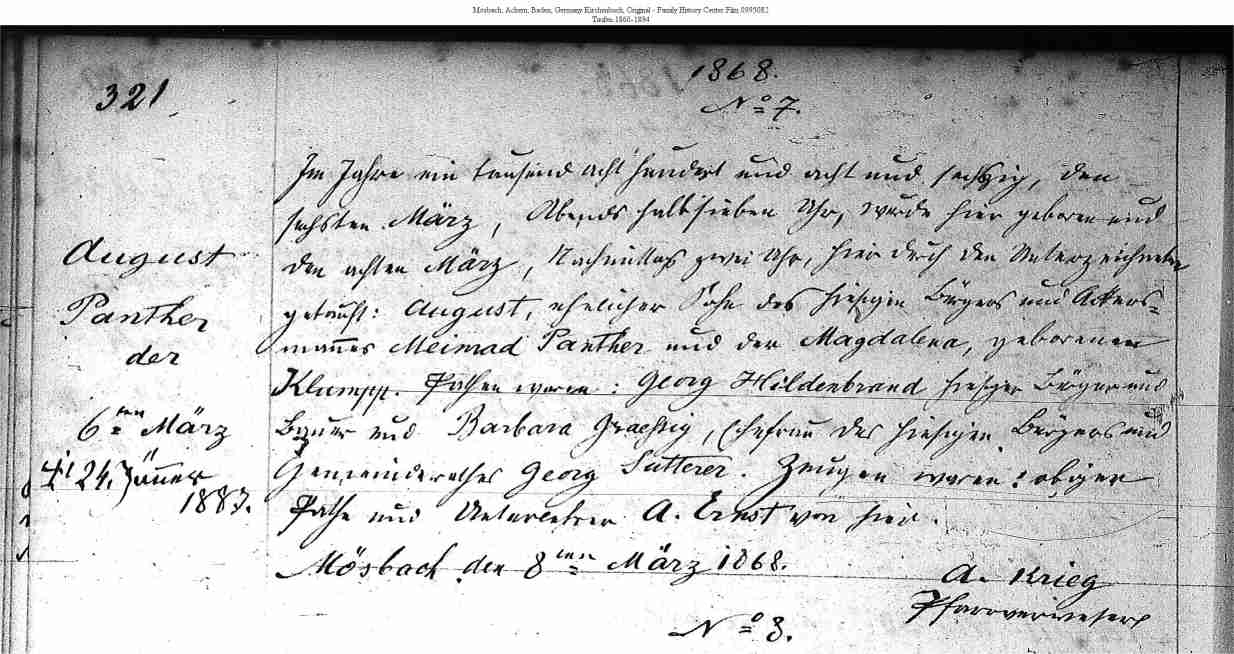 Mosbach, Achern, Baden, Germany Kirchenbuch, Original - Family History Center Film 0995082
Taufen 1860-1894
321
1868.
No 7.
Im Jahre ein tausend acht hundert und acht und sechzig, den
sechsten März, Abends halb sieben Uhr, wurde hier geboren und
den achten März, Nachmittags zwei Uhr, hier durch den Unterzeichneten
getauft: August, ehelicher Sohn des hiesigen Bürgers und Ackers=
mannes Meinrad Panther und der Magdalena, geborenen
Klumpp. Pathen waren: Georg Hildenbrand hiesiger Bürger und
Bauer und Barbara, Ehefrau des hiesigen Bürgers und
Gemeinderathes Georg Sutterer. Zeugen waren: obiger
Pathe und Unterlehrer A. Ernst von hier.
Mösbach den 8ten März 1868.
A. Krieg
Pfarrverweser
August
Panther
der
6ten März
24. Jänner
1883.
No 8.